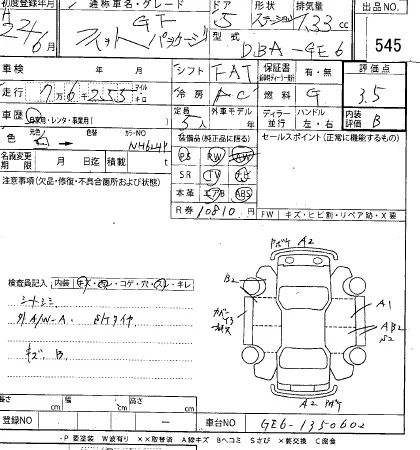 初度登録年月 通称車名・グレード ドア 形状 排気量 出品NO.
H 22/6月 GF フィット パッケージ 5 ステーション 1.33 cc 545
型式 DBA-GE6
車検 年 月 シフト FAT 保証書 有・無 評価点
走行 7万6255 マイル キロ 冷房 AC 燃料 G 3.5
車歴 自家用・レンタ・事業用 定員 5人 外車モデル ディーラー 並行 ハンドル 左・右 内装評価 B
色 元色 色替 カラーNO NH624P 装備品(純正品に限る) セールスポイント(正常に機能するもの)
名義変更期限 月 日迄 積載 t PS PW
注意事項(欠品・修復・不具合箇所および状態) SR TV ナビ
本革 エアB ABS
R券 10810 円 FW キズ・ヒビ割・リペア跡・X要
A2
検査員記入 内装 キズ・コゲ・穴・スレ・キレ B2
シートシミ A1
外A/W-A AB2
S2
キズ B
A2
長さ cm 幅 cm 高さ cm
登録NO - 車台NO GE6-1350602
・P 要塗装 W波有り ××取替済 A線キズ Bヘコミ Sさび ×要交換 C腐食